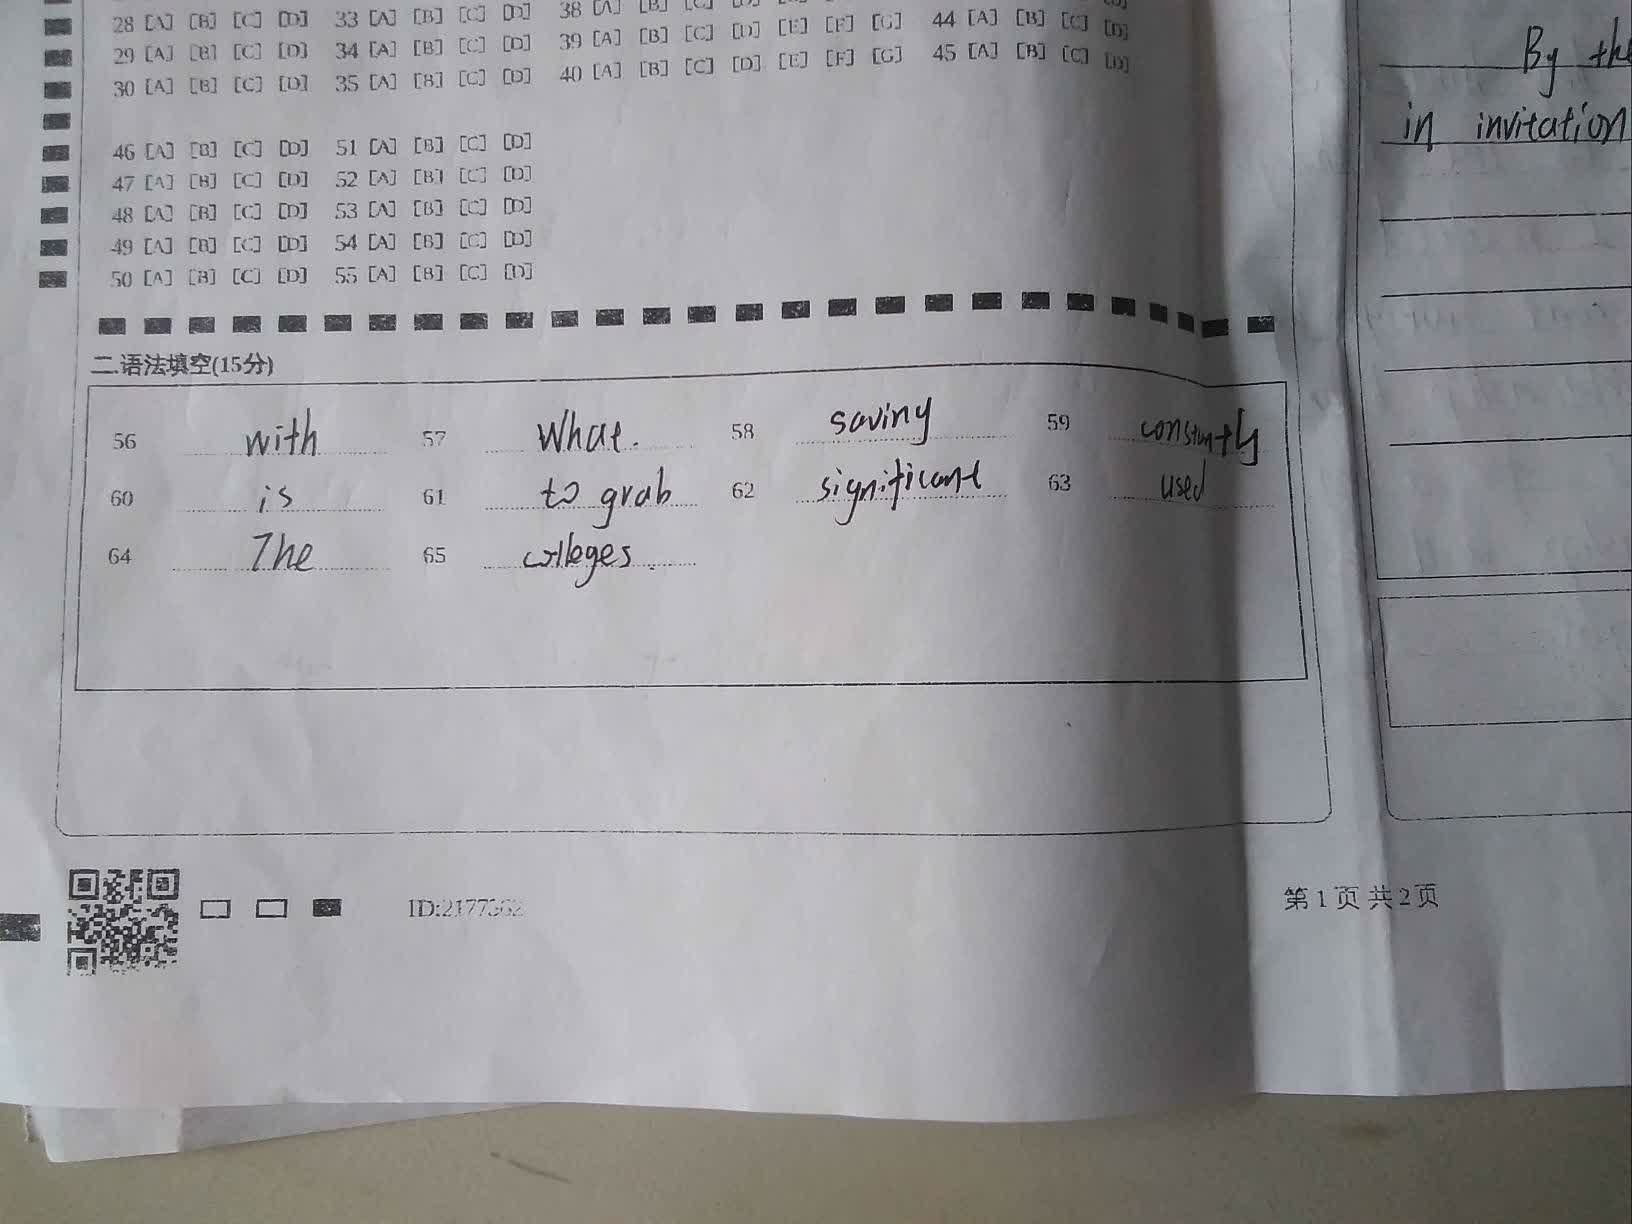 28 [A] [B] [C] [D] 33 [A] [B] [C] [D] 38 [A] [B] [C] [D]
29 [A] [B] [C] [D] 34 [A] [B] [C] [D] 39 [A] [B] [C] [D] [E] [F] [G] 44 [A] [B] [C] [D]
30 [A] [B] [C] [D] 35 [A] [B] [C] [D] 40 [A] [B] [C] [D] [E] [F] [G] 45 [A] [B] [C] [D]
46 [A] [B] [C] [D] 51 [A] [B] [C] [D]
47 [A] [B] [C] [D] 52 [A] [B] [C] [D]
48 [A] [B] [C] [D] 53 [A] [B] [C] [D]
49 [A] [B] [C] [D] 54 [A] [B] [C] [D]
50 [A] [B] [C] [D] 55 [A] [B] [C] [D]
二.语法填空(15分)
56 with 57 What. 58 saving 59 constantly
60 is 61 to grab 62 significant 63 used
64 The 65 colleges.
第1页 共2页
By the
in invitation